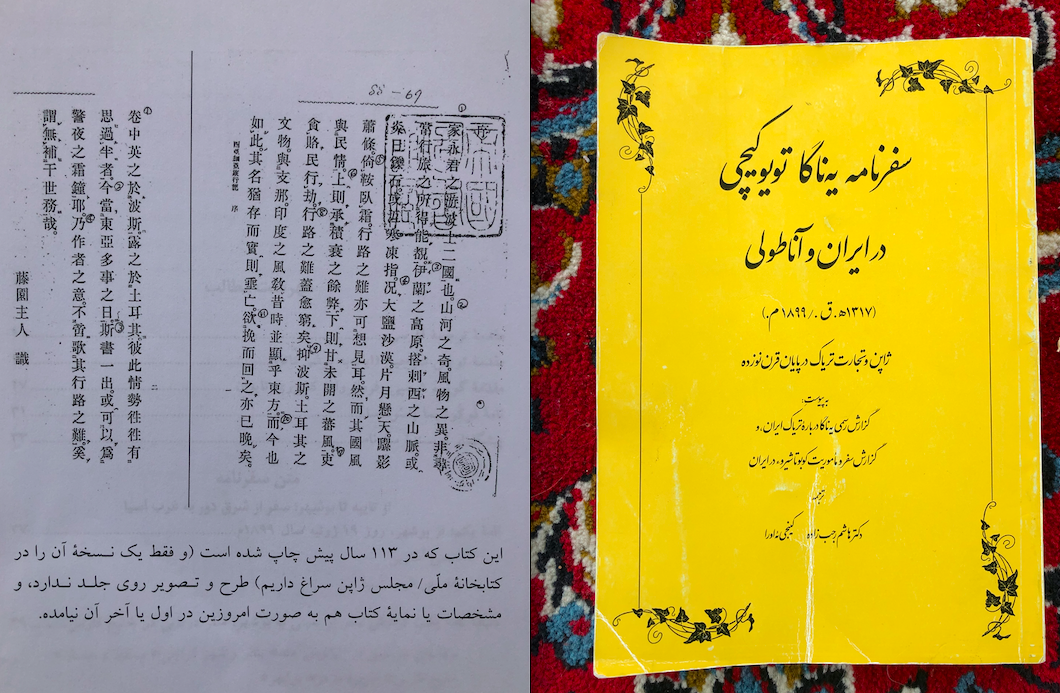 88 – 69
序
家永君之游波土二國也。山河之奇。風物之異。非尋
常行旅之所得能覩。伊蘭之高原。搭刺西之山脈。或
炎日鑠石。或沍寒凍指。况大鹽沙漠片月懸天。驢影
蕭條。倚鞍臥霜。行路之難亦可想見耳。然而其國風
與民情。上則承積衰之餘弊。下則甘未開之蕃風。吏
貪賂民行劫。行路之難蓋愈窮矣。抑波斯。土耳其之
文物。與支那印度之風敎。昔時並顯乎東方。而今也
如此。其名猶存而實則垂亡。欲挽而回之。亦已晚矣。
西亞細亞旅行記 序
卷中英之於波斯。露之於土耳其。彼此情勢徃徃有
思過半者。今當東亞多事之日。斯書一出。或可以爲
警夜之霜鐘耶。乃作者之意。不啻歌其行路之難。矣
謂無補于世務哉。
藤園主人 識
این کتاب که در ۱۱۳ سال پیش چاپ شده است (و فقط یک نسخهٔ آن را در
کتابخانهٔ ملّی/ مجلس ژاپن سراغ داریم) طرح و تصویر روی جلد ندارد، و
مشخصات یا نمایهٔ کتاب هم به صورت امروزین در اول یا آخر آن نیامده.
سفرنامه یه ناگا تویوکیچی
در ایران و آناطولی
(۱۳۱۷ ه‍. ق. / ۱۸۹۹ م.)
ژاپن و تجارت تریاک در پایان قرن نوزده
به پیوست:
گزارش رسمی یه ناگا درباره تریاک ایران، و
گزارش سفر و ماموریت کوبوتا شیرو، در ایران
ترجمه:
دکتر هاشم رجب زاده کینجی ئه اورا